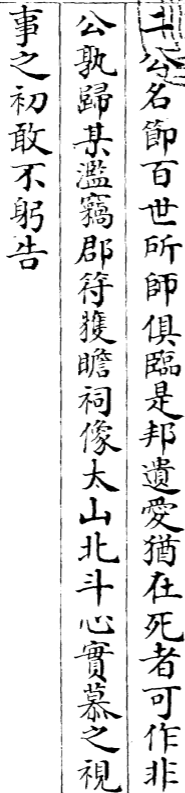 二公名節百世所師俱臨是邦遺愛猶在死者可作非
公孰歸某濫竊郡符獲瞻祠像太山北斗心實慕之視
事之初敢不躬告